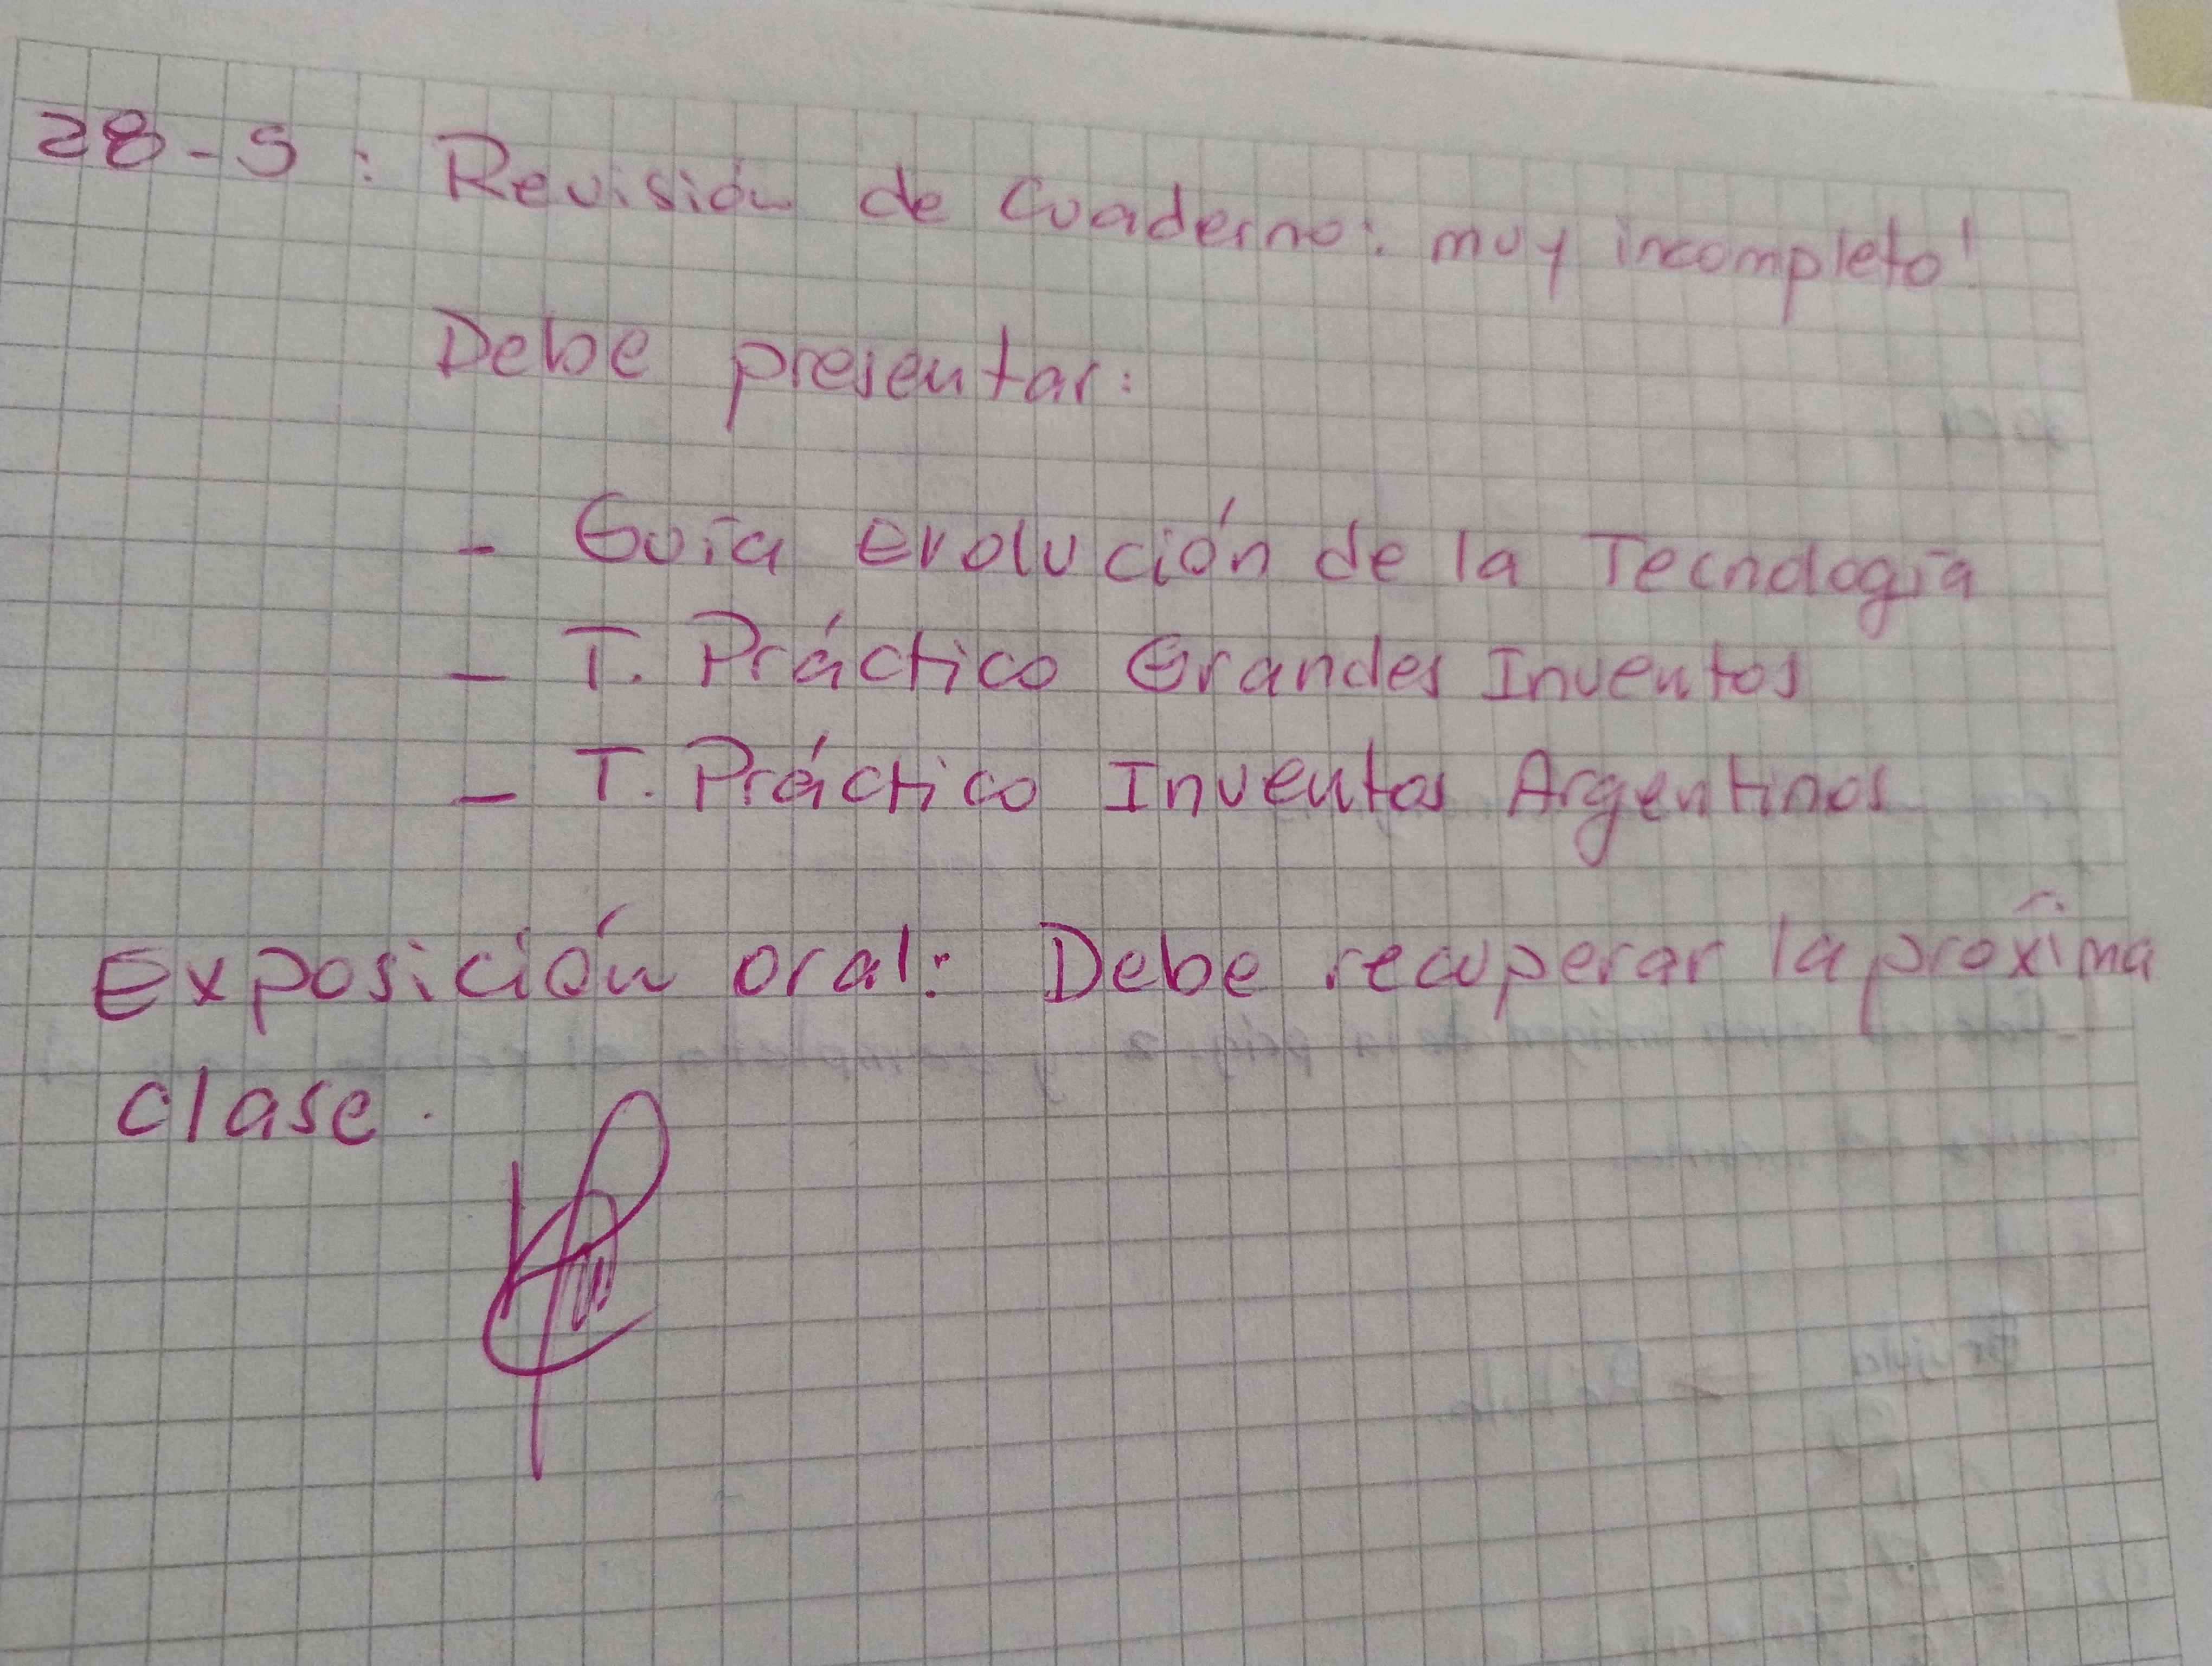 28-5: Revisión de Cuaderno: muy incompleto!
Debe presentar:
- Guía Evolución de la Tecnología
- T. Práctico Grandes Inventos
- T. Práctico Inventos Argentinos
Exposición oral: Debe recuperar la próxima
clase.